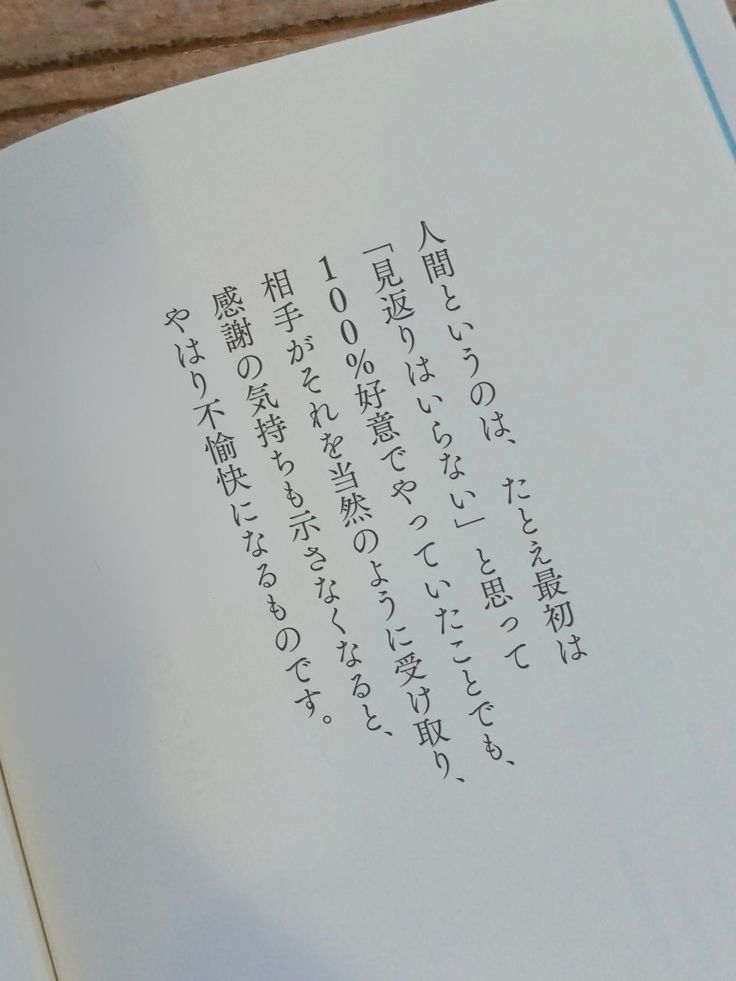 人間というのは、たとえ最初は
「見返りはいらない」と思って
100%好意でやっていたことでも、
相手がそれを当然のように受け取り、
感謝の気持ちも示さなくなると、
やはり不愉快になるものです。